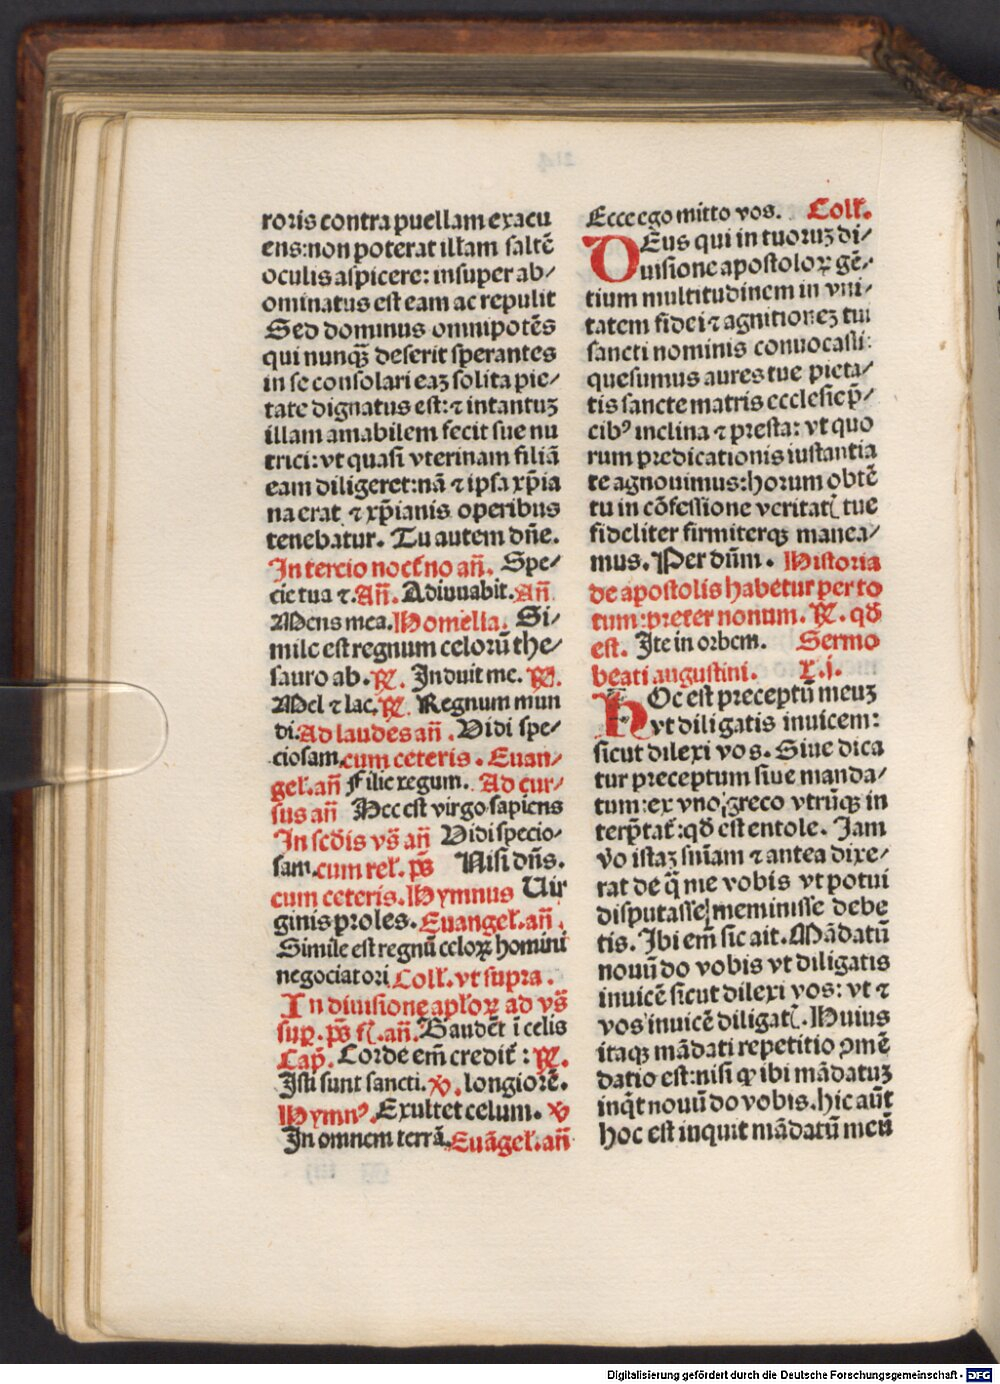 roris contra puellam exacu
ens:non poterat illam saltē
oculis aspicere: insuper ab⸗
ominatus est eam ac repulit
Sed dominus omnipotēs
qui nunqꝫ deserit sperantes
in se consolari eaꝫ solita pie⸗
tate dignatus est:⁊ intantuꝫ
illam amabilem fecit sue nu
trici:vt quasi vterinam filiā
eam diligeret:nā ⁊ ipsa xp̄ia
na erat ⁊ xp̄ianis operibus
tenebatur. Tu autem dn̄e.
In tercio noct̄no an̄. Spe⸗
cie tua ⁊. An̄. Adiuuabit. An̄
Mens mea. Homelia. Si⸗
mile est regnum celorū the⸗
sauro ab. ℟. Induit me. ℟.
Mel ⁊ lac. ℟ Regnum mun
di. Ad laudes an̄. Vidi spe⸗
ciosam.cum ceteris. Euan⸗
gel̄. an̄ Filie regum. Ad cur⸗
sus an̄ Hec est virgo sapiens
In scd̄is vs̄ an̄ Vidi specio⸗
sam.cum rel̄. ps̄ Nisi dn̄s.
cum ceteris. Hymnus Uir
ginis proles. Euangel̄.an̄.
Simile est regnū celoꝝ homini
negociatori Coll̄. vt supra.
In diuisione apl̄oꝝ ad vs̄
sup̲. ps̄ fl̄. an̄. Gaudēt ī celis
Cap̄. Corde em̄ credit̄: ℟.
Isti sunt sancti. ℣. longiorē.
Hymnꝰ. Exultet celum. ℣
In omnem terrā. Euāgel̄.an̄
Ecce ego mitto vos. Coll̄.
DEus qui in tuoruꝫ di⸗
uisione apostoloꝝ gē⸗
tium multitudinem in vni⸗
tatem fidei ⁊ agnitioneꝫ tui
sancti nominis conuocasti:
quesumus aures tue pieta⸗
tis sancte matris ecclesie p̄⸗
cibꝰ inclina ⁊ presta: vt quo
rum predicationis iustantia
te agnouimus:horum obtē
tu in cōfessione veritatꝭ tue
fideliter firmiterqꝫ manea⸗
mus. Per dn̄m. Historia
de apostolis habetur per to
tum:preter nonum. ℟. qd̄
est. Ite in orbem. Sermo
beati augustini. L. j.
HOc est preceptū meuꝫ
vt diligatis inuicem:
sicut dilexi vos. Siue dica
tur preceptum siue manda⸗
tum:ex vno greco vtrūqꝫ in
terp̄tat̄:qd̄ est entole. Iam
v̄o istaꝫ sn̄iam ⁊ antea dixe⸗
rat de q̄ me vobis vt potui
disputasse meminisse debe
tis. Ibi em̄ sic ait. Mādatū
nouū do vobis vt diligatis
inuicē sicut dilexi vos: vt ⁊
vos inuicē diligatꝭ. Huius
itaqꝫ mādati repetitio ꝯmē
datio est:nisi ꝙ ibi mādatuꝫ
inq̄t nouū do vobis. hic aūt
hoc est inquit mādatū meū
Digitalisierung gefördert durch die Deutsche Forschungsgemeinschaft - DFG